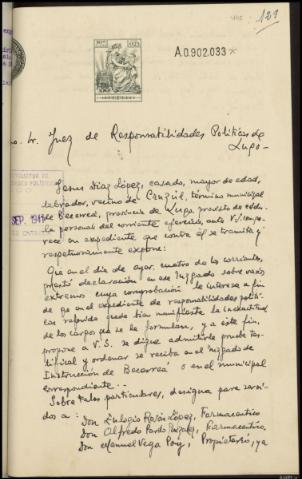 121
A0.902.033
Sr. Juez de Responsabilidades Politicas de
Lugo.-
Jesus Diaz López, casado, mayor de edad,
labrador, vecino de Cruzul, término municipal
de Becerreá, provincia de Lugo, provisto de cédu-
la personal del corriente ejercicio, ante V.S. compa-
rece en expediente que contra él se tramita y
respetuosamente expone:
Que en el dia de ayer, cuatro de los corrientes,
prestó declaración en ese Juzgado sobre varios
extremos cuya comprobación le interesa a fin
de qe en el expediente de responsabilidades politi-
cas referido quede bien manifiesta la inexactitud
de los cargos que se le formulan, y a este fin,
propone a V.S. se digne admitirle prueba tes-
tifical y ordenar se reciba en el Juzgado de
Instrucción de Becerreá o en el municipal
correspondiente.-
Sobre tales particulares, designa para
a:
Don Eulogio Rosón López, Farmaceutico
Don Alfredo Pardo Farmaceutico
Don Manuel Vega Roy, Propietario, ya
SEP. 194